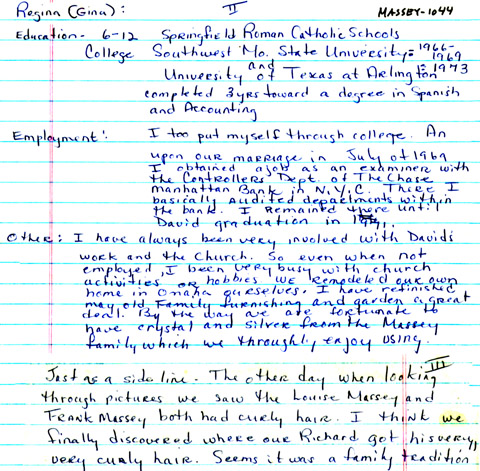 Regina (Gina): II MASSEY-1044
Education- 6-12 Springfield Roman Catholic Schools
College Southwest Mo. State University = 1966-1969
and
University of Texas at Arlington = 1973
completed 3yrs toward a degree in Spanish
and Accounting
Employment: I too put myself through college. An
upon our marriage in July of 1969
I obtained a job as an examiner with
the Controllers Dept. of The Chase
Manhattan Bank in N.Y.C. There I
basically audited departments within
the bank. I remained there until
David graduation in 1971.
Other: I have always been very involved with David's
work and the Church. So even when not
employed, I been very busy with church
activities or hobbies. We remodeled our own
home in Omaha ourselves. I have refinished
may old family furnishing and garden a great
deal. By the way we are fortunate to
have crystal and silver from the Massey
family which we throughly enjoy using.
III
Just as a side line. The other day when looking
through pictures we saw the Louise Massey and
Frank Massey both had curly hair. I think we
finally discovered where our Richard got his very,
very curly hair. Seems it was a family tradition